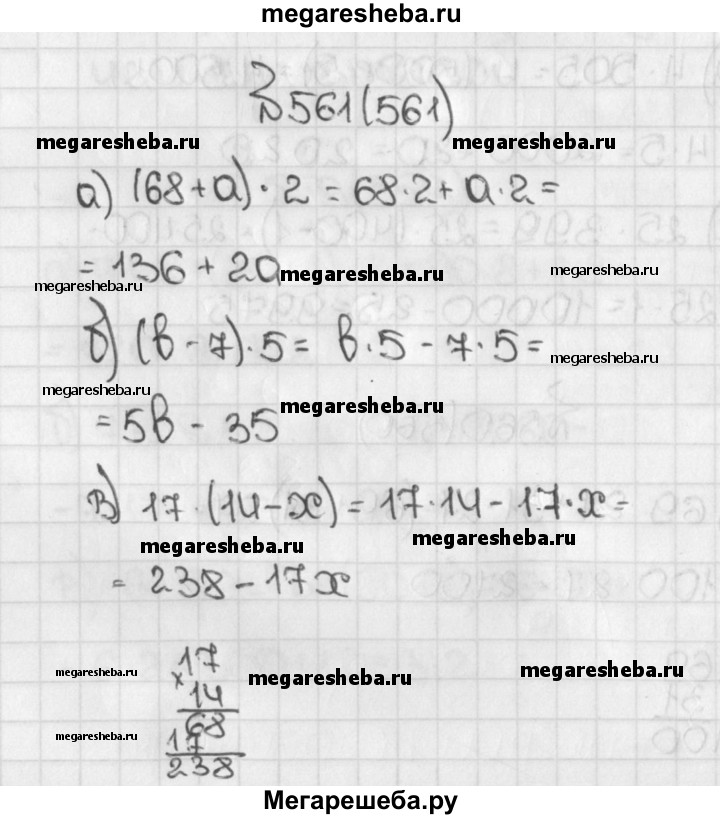 megaresheba.ru
№561(561)
megaresheba.ru megaresheba.ru
а) (68+a)·2=68·2+a·2=
=136+2a
megaresheba.ru megaresheba.ru megaresheba.ru
б) (в-7)·5= в·5-7·5=
megaresheba.ru
megaresheba.ru
=5в-35
megaresheba.ru
в) 17·(14-x)=17·14-17·x=
megaresheba.ru megaresheba.ru
=238-17x
17
×14
68
17
238
megaresheba.ru megaresheba.ru megaresheba.ru
megaresheba.ru
Мегарешеба.ру